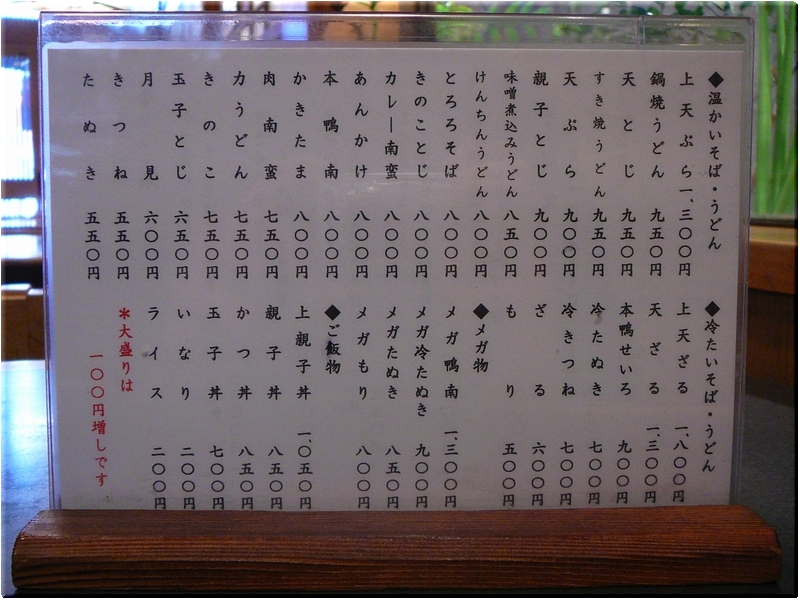 ◆温かいそば・うどん
上天ぷら 一、三〇〇円
鍋焼うどん 九五〇円
天とじ 九五〇円
すき焼うどん 九五〇円
天ぷら 九〇〇円
親子とじ 九〇〇円
味噌煮込みうどん 八五〇円
けんちんうどん 八〇〇円
とろろそば 八〇〇円
きのことじ 八〇〇円
カレー南蛮 八〇〇円
あんかけ 八〇〇円
本鴨南 八〇〇円
かきたま 八〇〇円
肉南蛮 七五〇円
力うどん 七五〇円
きのこ 七五〇円
玉子とじ 六五〇円
月見 六〇〇円
きつね 五五〇円
たぬき 五五〇円
◆冷たいそば・うどん
上天ざる 一、八〇〇円
天ざる 一、三〇〇円
本鴨せいろ 九〇〇円
冷たぬき 七〇〇円
冷きつね 七〇〇円
ざる 六〇〇円
もり 五〇〇円
◆メガ物
メガ鴨南 一、三〇〇円
メガ冷たぬき 九〇〇円
メガたぬき 八五〇円
メガもり 八〇〇円
◆ご飯物
上親子丼 一、〇五〇円
親子丼 八五〇円
かつ丼 八五〇円
玉子丼 七〇〇円
いなり 二〇〇円
ライス 二〇〇円
*大盛りは
一〇〇円増しです